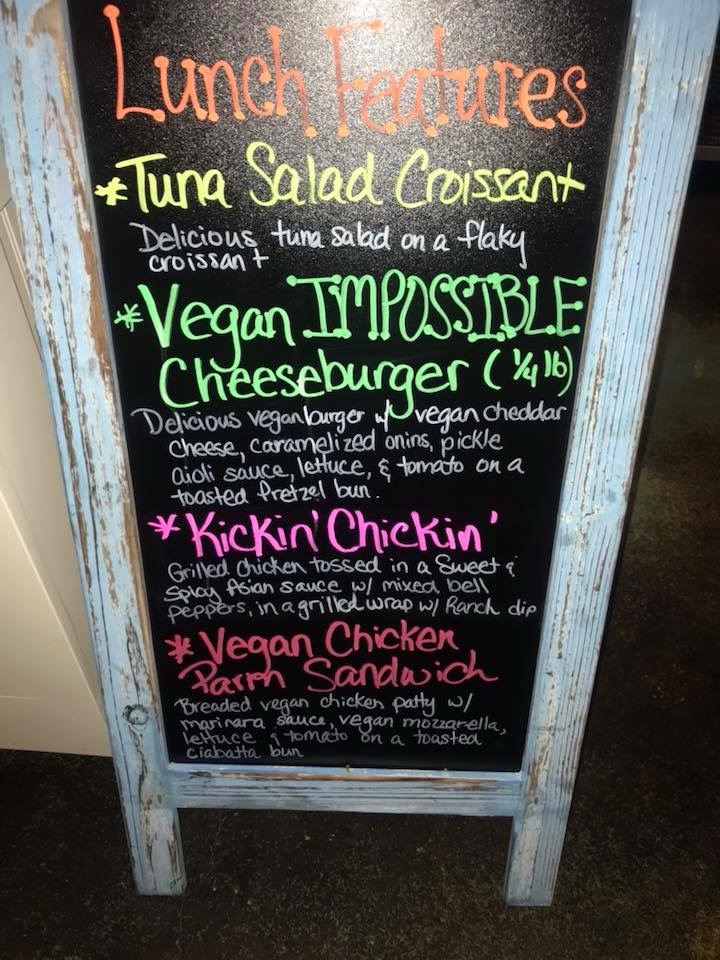 Lunch Features
*Tuna Salad Croissant
Delicious tuna salad on a flaky
croissant
*Vegan IMPOSSIBLE
Cheeseburger (1/4 lb)
Delicious veganburger w/ vegan cheddar
cheese, caramelized onins, pickle
aioli sauce, lettuce, & tomato on a
toasted Pretzel bun.
*Kickin' Chickin'
Grilled Chicken tossed in a Sweet &
Spicy Asian sauce w/ mixed bell
peppers, in a grilled wrap w/ Ranch dip
*Vegan Chicken
Parm Sandwich
Breaded vegan chicken patty w/
marinara sauce, vegan mozzarella,
lettuce & tomato on a toasted
ciabatta bun